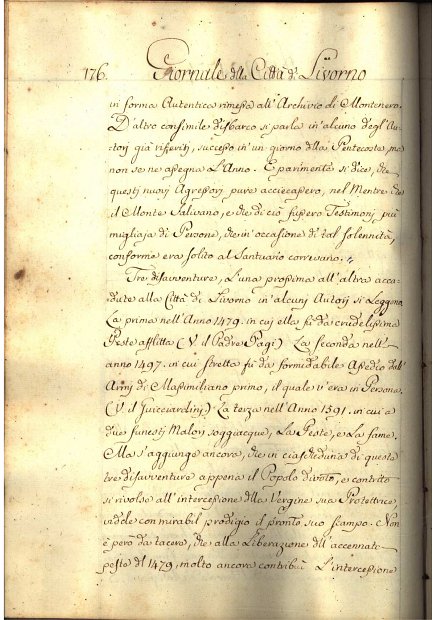 176. Giornale dlla Città di Livorno
in forma Autentica rimessa all'Archivio di Montenero.
D'altro consimile disbarco si parla in'alcuno degl'Au-
torj già riferitj, successo in'un giorno dlla Pentecoste, ma
non se ne assegna l'Anno. E parimente si dice, che
questj nuovj Agressorj pure acciecassero, nel Mentre che
il Monte Salivano, e che di ciò fussero Testimonj più
migliaja di Persone, che in'occasione di tal solennità,
conforme era solito al Santuario correvano.
Tre disavventure, l'una prossima all'altra acca-
dute alla Città di Livorno in'alcunj Autorj si Leggono
La prima nell'Anno 1479. in cui ella fù da crudelissima
Peste afflitta (V. il Padre Pagi) La seconda nell'
anno 1497. in cui stretta fù da formidabile Assedio dall'
Armj di Massimiliano primo, il quale v'era in Persona.
(V. il Guicciardinj) La terza nell'Anno 1591. in cui a
due funestj Malorj soggiacque, La Peste, e La fame.
Ma s'aggiunge ancora, che in ciascheduna di queste
tre disavventure appena il Popolo divoto, e contrito
si rivolse all'intercessione dlla Vergine sua Protettrice
vidde con mirabil prodigio il pronto suo scampo. Non
è però da tacersi, che alla Liberazione dll'accennata
peste dl 1479, molto ancora contribuì L'intercessione